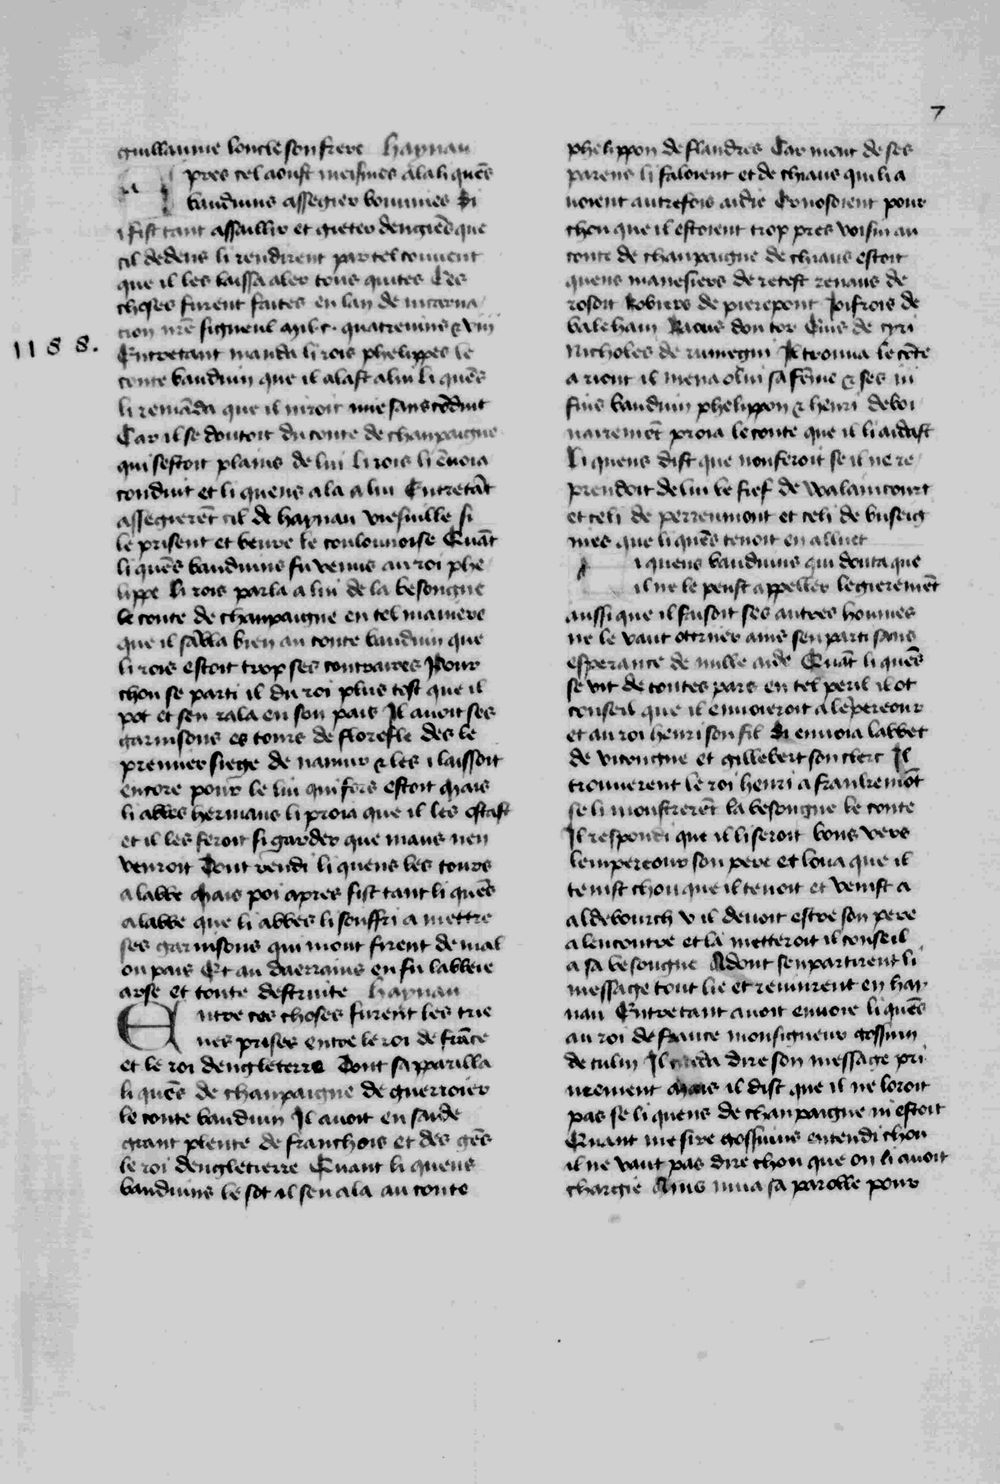 7
guillaume loncle son frere haynau
pres cel aoust meismes ala li quēs
bauduins assegier bouuines Si
i fist tant assaillir et gieter dengiēs que
cil dedens li rendirent par tel couuent
que il les laissa aler tous quites Ces
choses furent faites en lan de incarna
cion nr̄e signeur mil·c· quatreuins & viii
1188.
Entretant manda li rois phelippes le
conte bauduin que il alast a lui li quēs
li remāda que il niroit mie sans cōduit
Car il se doutoit du conte de chanpaigne
qui sestoit plains de lui li rois li ēuoia
conduit et li quens ala a lui Entretāt
assegierēt cil de haynau viesuille si
le prisent et beure le coulonnoise Quāt
li quēs bauduins fu venus au roi phe
lippe li rois parla a lui de la besongne
le conte de chanpaigne en tel maniere
que il sābla bien au conte bauduin que
li rois estoit trop ses contraires Pour
chou se parti il du roi plus tost que il
pot et sen rala en son pais Il auoit ses
garnisons es tours de florefle des le
premier siege de namur & les i laissoit
encore pour le lui qui fors estoit Mais
li abbes hermans li proia que il les ostast
et il les feroit si garder que maus nen
venroit Dont rendi li quens les tours
a labbe Mais poi apres fist tant li quēs
a labbe que li abbes li souffri a mettre
ses garnisons qui mout firent de mal
ou pais Et au daerrains en fu labbeie
arse et toute destruite haynau
Entre ces choses furent les trie
ues prises entre le roi de frāce
et le roi dengleterre Dont sapparilla
li quēs de chanpaigne de guerroier
le conte bauduin Il auoit en saide
grant plente de franchois et des gēs
le roi dengletierre Quant li quens
bauduins le sot il sen ala au conte
phelippon de flandres Car mout de ses
parens li faloient et de chiaus qui li a
uoient autrefois aidie Et nosoient pour
chou que il estoient trop pres voisin au
conte de chanpaigne de chiaus estoit
quens manesiers de retest renaus de
rosoit Robiers de pierepont Joifrois de
baleham Raous dou tor Guis de cyri
Nicholes de rumegni Il trouua le cōte
a riout il mena o lui sa fēme & ses iii
fius bauduin phelippon & henri deboi
nairemēt proia le conte que il li aidast
Li quens dist que non feroit se il ne re
prendoit de lui le fief de walaincourt
et celi de perreumont et celi de buseig
nies que li quēs tenoit en alluet
i quens bauduins qui douta que
il ne le peust appeller legierement
aussi que il faisoit ses autres hommes
ne le vaut ottrier ains sen parti sans
esperance de nulle aide Quāt li quēs
se vit de toutes pars en tel peril il ot
conseil que il enuoieroit a lēpereour
et au roi henri son fil Si enuoia labbet
de vicongne et gillebert son clerc Il
trouuerent le roi henri a frankemōt
se li monstrerēt la besongne le conte
Il respondi que il li seroit bons vers
lempereour son pere et loua que il
tenist chou que il tenoit et venist a
aldebourch v il deuoit estre son pere
a lencontre et la metteroit il conseil
a sa besongne Adont sen partirent li
message tout lie et reuinrent en hay
nau Entretant auoit enuoie li quēs
au roi de france monsigneur gossuin
de tulin Il dire son message pri
ueement Mais il dist que il ne loroit
pas se li quens de chanpaigne ni estoit
Quant me sire gossuins entendi chou
il ne vaut pas dire chou que on li auoit
chargie Ains mua sa parolle pour